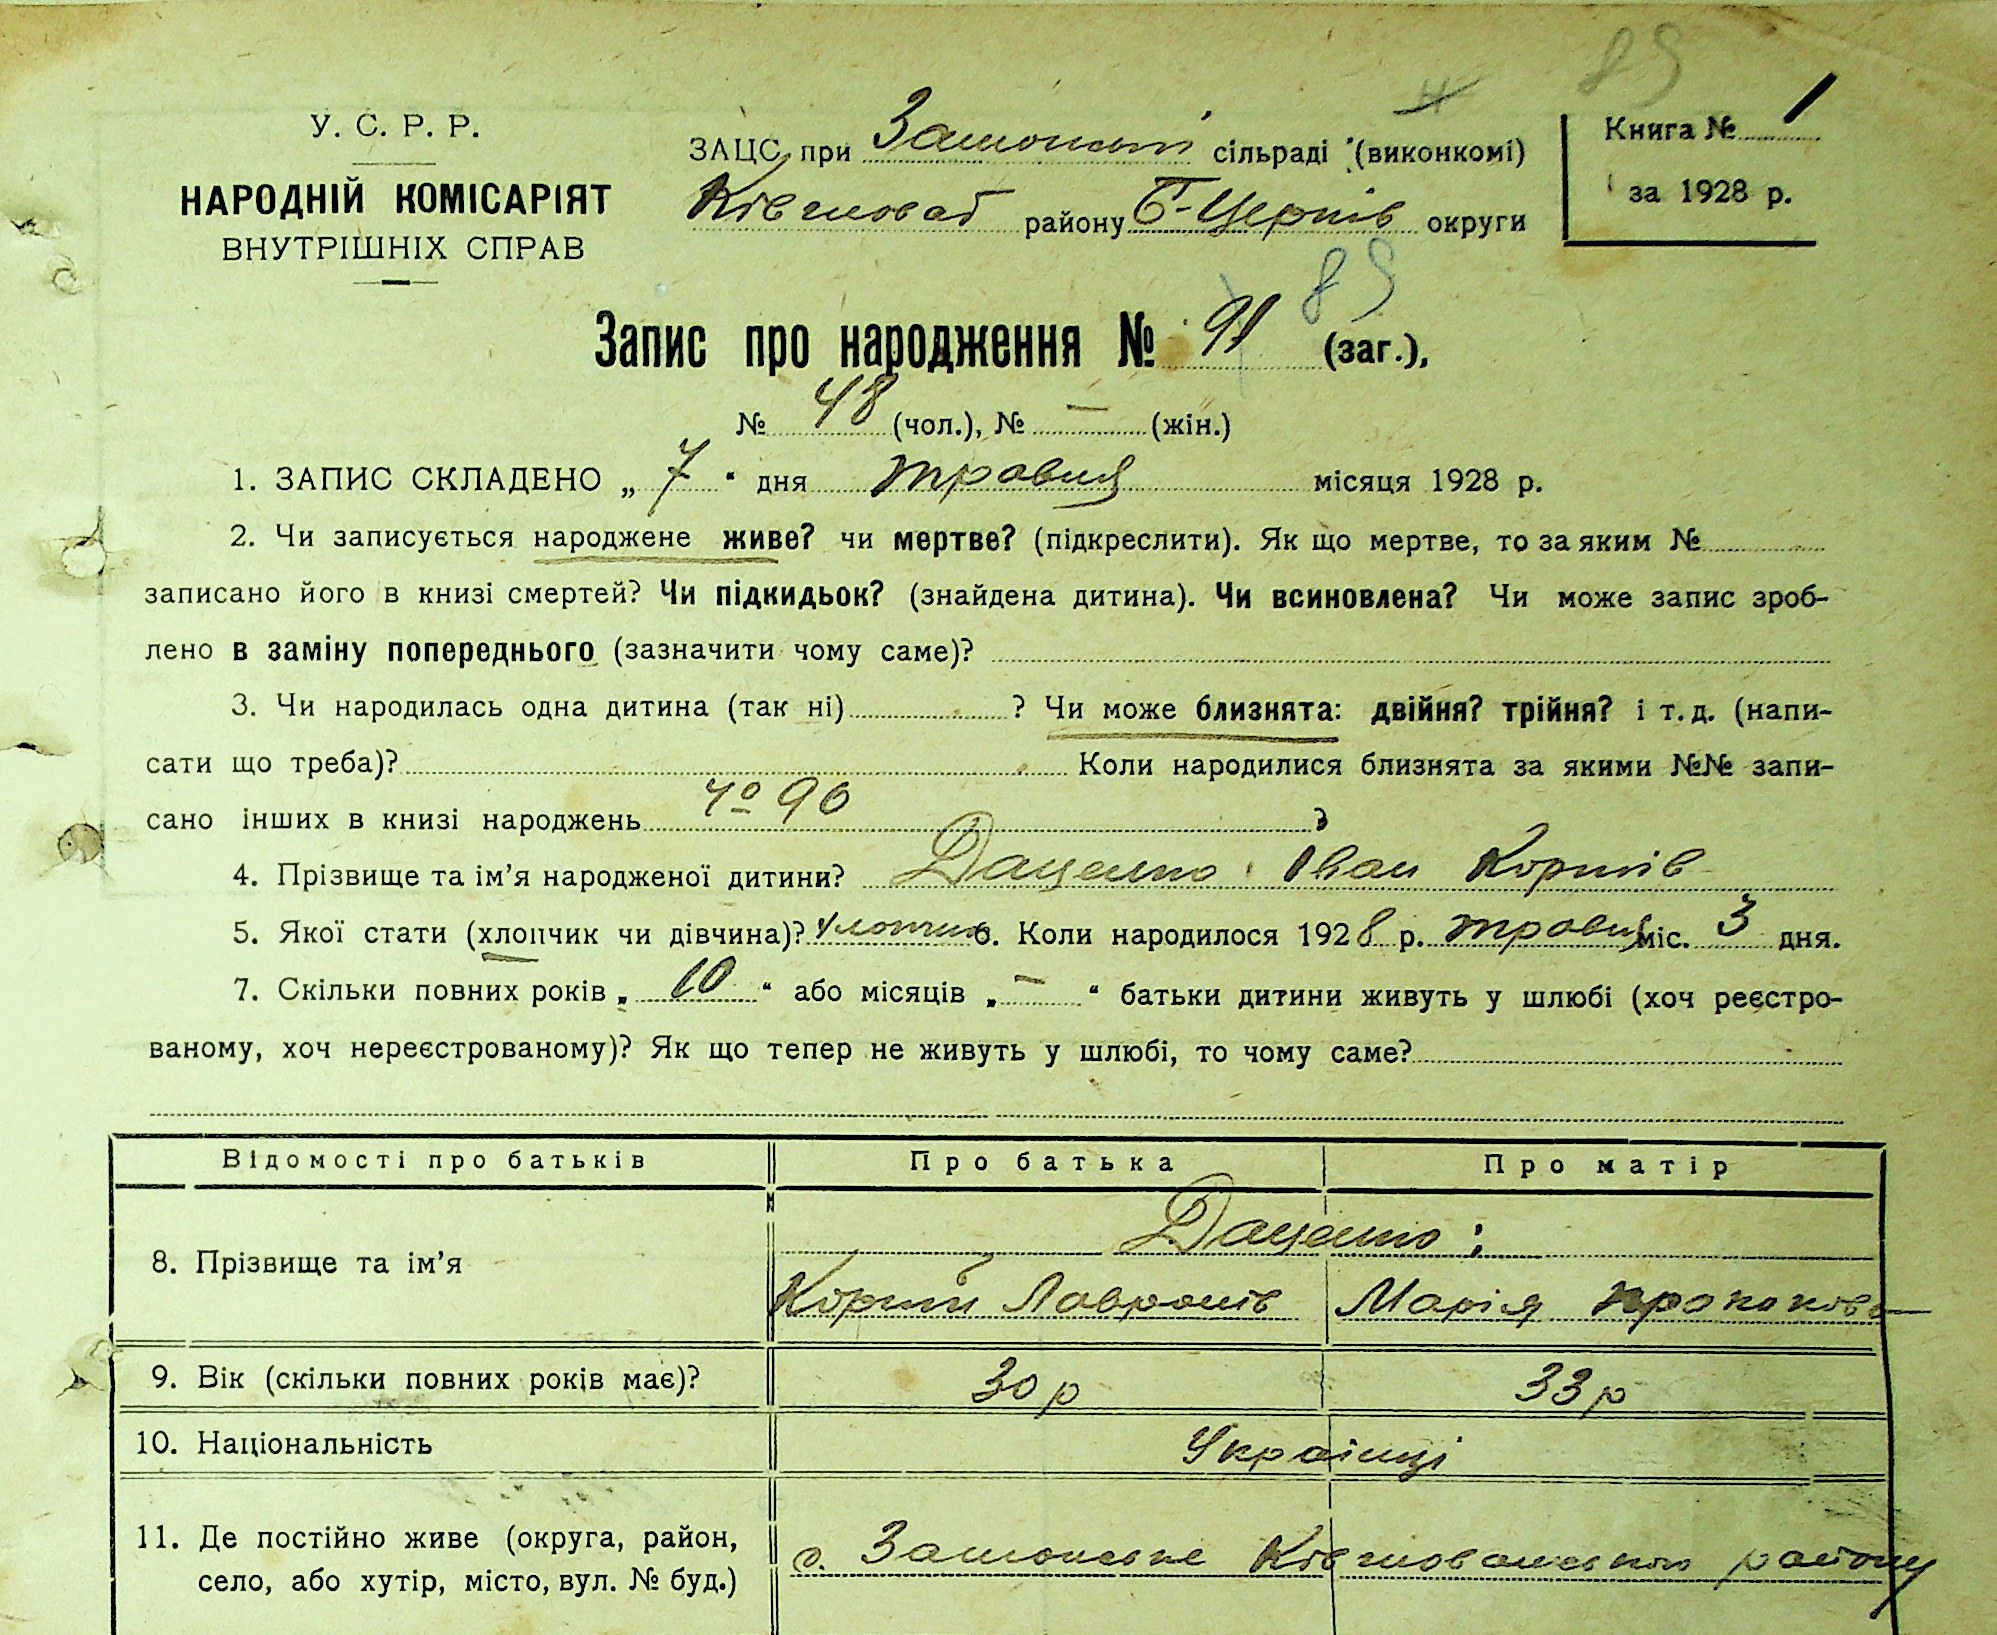 85
У. С. Р. Р.
НАРОДНІЙ КОМІСАРІЯТ
ВНУТРІШНІХ СПРАВ
ЗАЦС при сільраді (виконкомі)
району Б-Церків округи
Книга № 1
за 1928 р.
85
Запис про народження № 91 (заг.),
№ 48 (чол.), № — (жін.)
1. ЗАПИС СКЛАДЕНО „ 7 “ дня травня місяця 1928 р.
2. Чи записується народжене живе? чи мертве? (підкреслити). Як що мертве, то за яким №
записано його в книзі смертей? Чи підкидьок? (знайдена дитина). Чи всиновлена? Чи може запис зроб-
лено в заміну попереднього (зазначити чому саме)?
3. Чи народилась одна дитина (так ні) ? Чи може близнята: двійня? трійня? і т. д. (напи-
сати що треба)? Коли народилися близнята за якими №№ запи-
сано інших в книзі народжень № 90 ?
4. Прізвище та ім’я народженої дитини? Даценко Іван Корнів
5. Якої стати (хлопчик чи дівчина)? хлопчик 6. Коли народилося 1928 р. травня міс. 3 дня.
7. Скільки повних років „ 10 “ або місяців „ — “ батьки дитини живуть у шлюбі (хоч реєстро-
ваному, хоч нереєстрованому)? Як що тепер не живуть у шлюбі, то чому саме?
Відомості про батьків Про батька Про матір
8. Прізвище та ім’я
Даценко:
Корній Лавронів Марія Прокопова
9. Вік (скільки повних років має)? 30 р 33 р
10. Національність Українці
11. Де постійно живе (округа, район,
село, або хутір, місто, вул. № буд.)
с. району